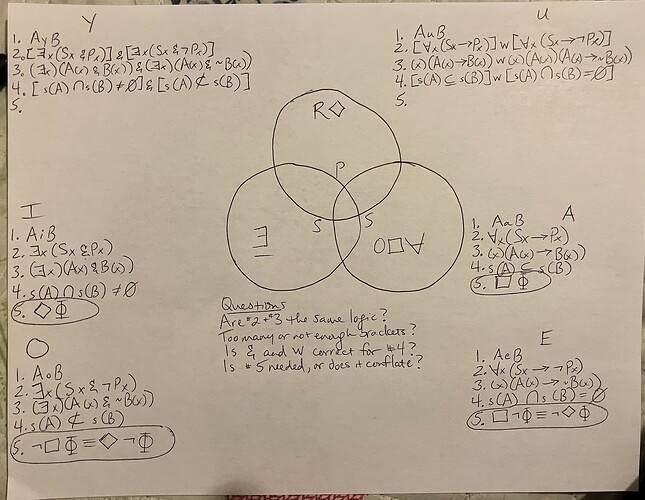 Y
1. AyB
2. [∃x(Sx & Px)] & [∃x(Sx & ¬Px)]
3. (∃x)(A(x) & B(x)) & (∃x)(A(x) & ~B(x))
4. [s(A) ∩ s(B) ≠ ∅] & [s(A) ⊄ s(B)]
5.
U
1. AuB
2. [∀x(Sx → Px)] w [∀x(Sx → ¬Px)]
3. (x)(A(x) → B(x)) w (x)(A(x)(A(x) → ~B(x))
4. [s(A) ⊆ s(B)] w [s(A) ∩ s(B) = ∅]
5.
R◇
P
S
S
∃
O□∀
I
1. AiB
2. ∃x(Sx & Px)
3. (∃x)(A(x) & B(x))
4. s(A) ∩ s(B) ≠ ∅
5. ◇Φ
A
1. AaB
2. ∀x(Sx → Px)
3. (x)(A(x) → B(x))
4. s(A) ⊆ s(B)
5. □Φ
O
1. AoB
2. ∃x(Sx & ¬Px)
3. (∃x)(A(x) & ~B(x))
4. s(A) ⊄ s(B)
5. ¬□Φ ≡ ◇¬Φ
E
1. AeB
2. ∀x(Sx → ¬Px)
3. (x)(A(x) → ~B(x))
4. s(A) ∩ s(B) = ∅
5. □¬Φ ≡ ¬◇Φ
Questions
Are #2 + #3 the same logic?
Too many or not enough brackets?
Is & and w correct for #4?
Is #5 needed, or does it conflate?